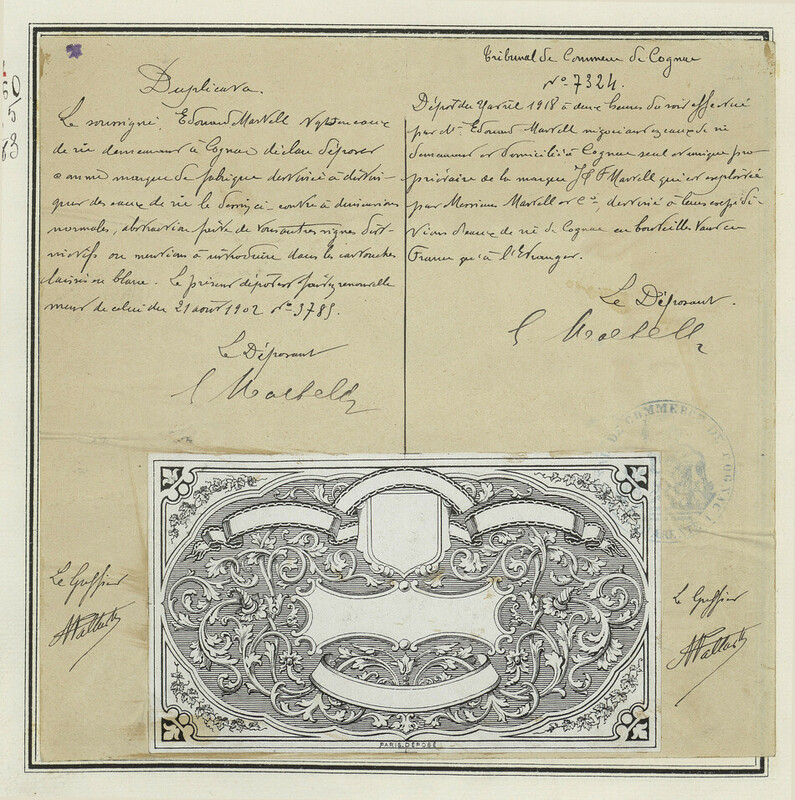 Duplicata.
Le soussigné, Edouard Martell négt en eaux
de vie demeurant à Cognac déclare déposer
comme marque de fabrique destinée à distin-
guer des eaux de vie le dessin ci-contre à dimensions
normales, abstraction faite de tous autres signes dist-
inctifs ou mentions à introduire dans les cartouches
laissés en blanc. Le présent dépôt est fait en renouvelle
ment de celui du 21 août 1902 No 3785.
Le Déposant
E Martell
Tribunal de Commerce de Cognac
No 7324.
Dépôt du avril 1918 à deux heures du soir effectué
par Mr Edouard Martell négociant en eaux de vie
demeurant et domicilié à Cognac seul et unique pro-
priétaire de la marque J & F Martell qui est exploitée
par Messieurs Martell et Cie, destinée à leurs expédi-
tions d'eaux de vie de Cognac en bouteilles tant en
France qu'à l'Etranger.
Le Déposant.
E Martell
DE COMMERCE DE COGNAC
Le Greffier
Le Greffier
PARIS. DÉPOSÉ